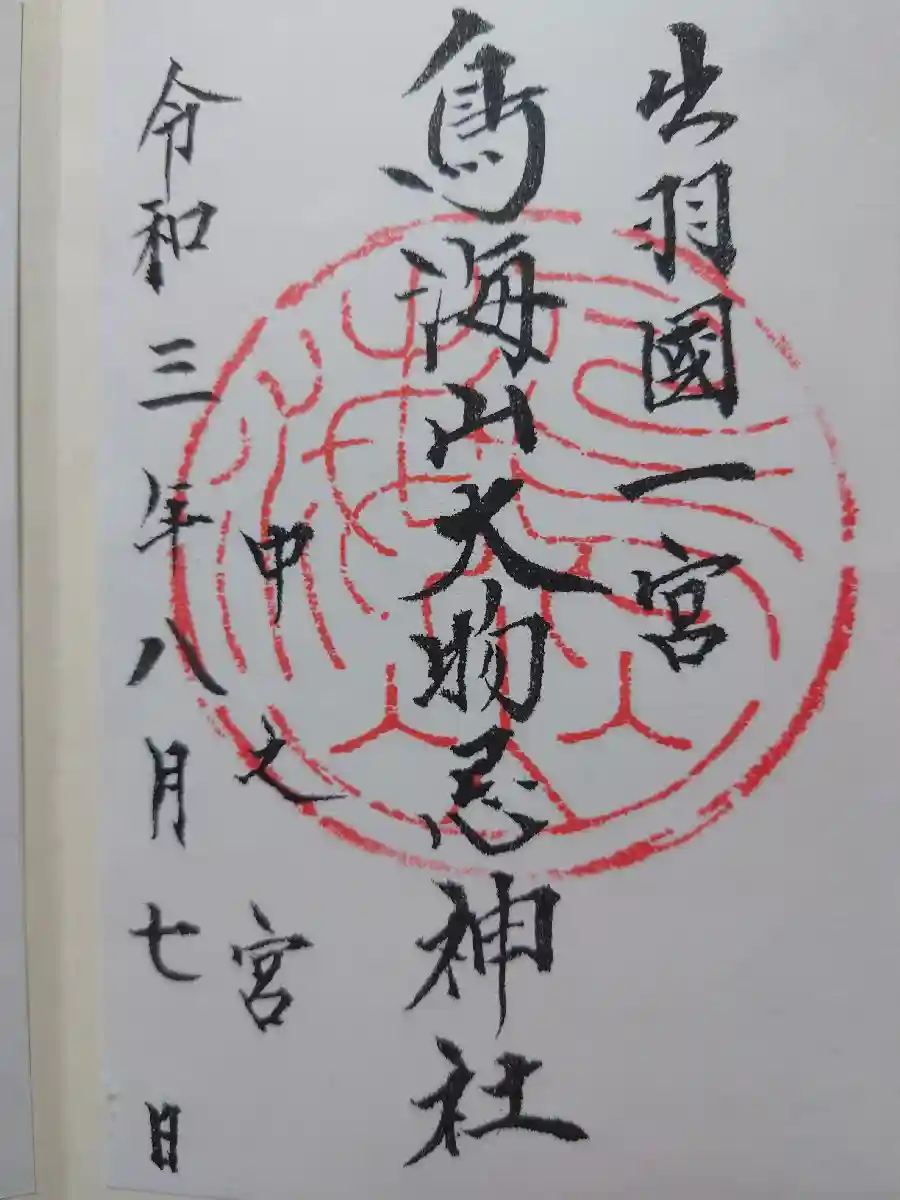 出羽國一宮
鳥海山大物忌神社
中之宮
令和三年八月七日